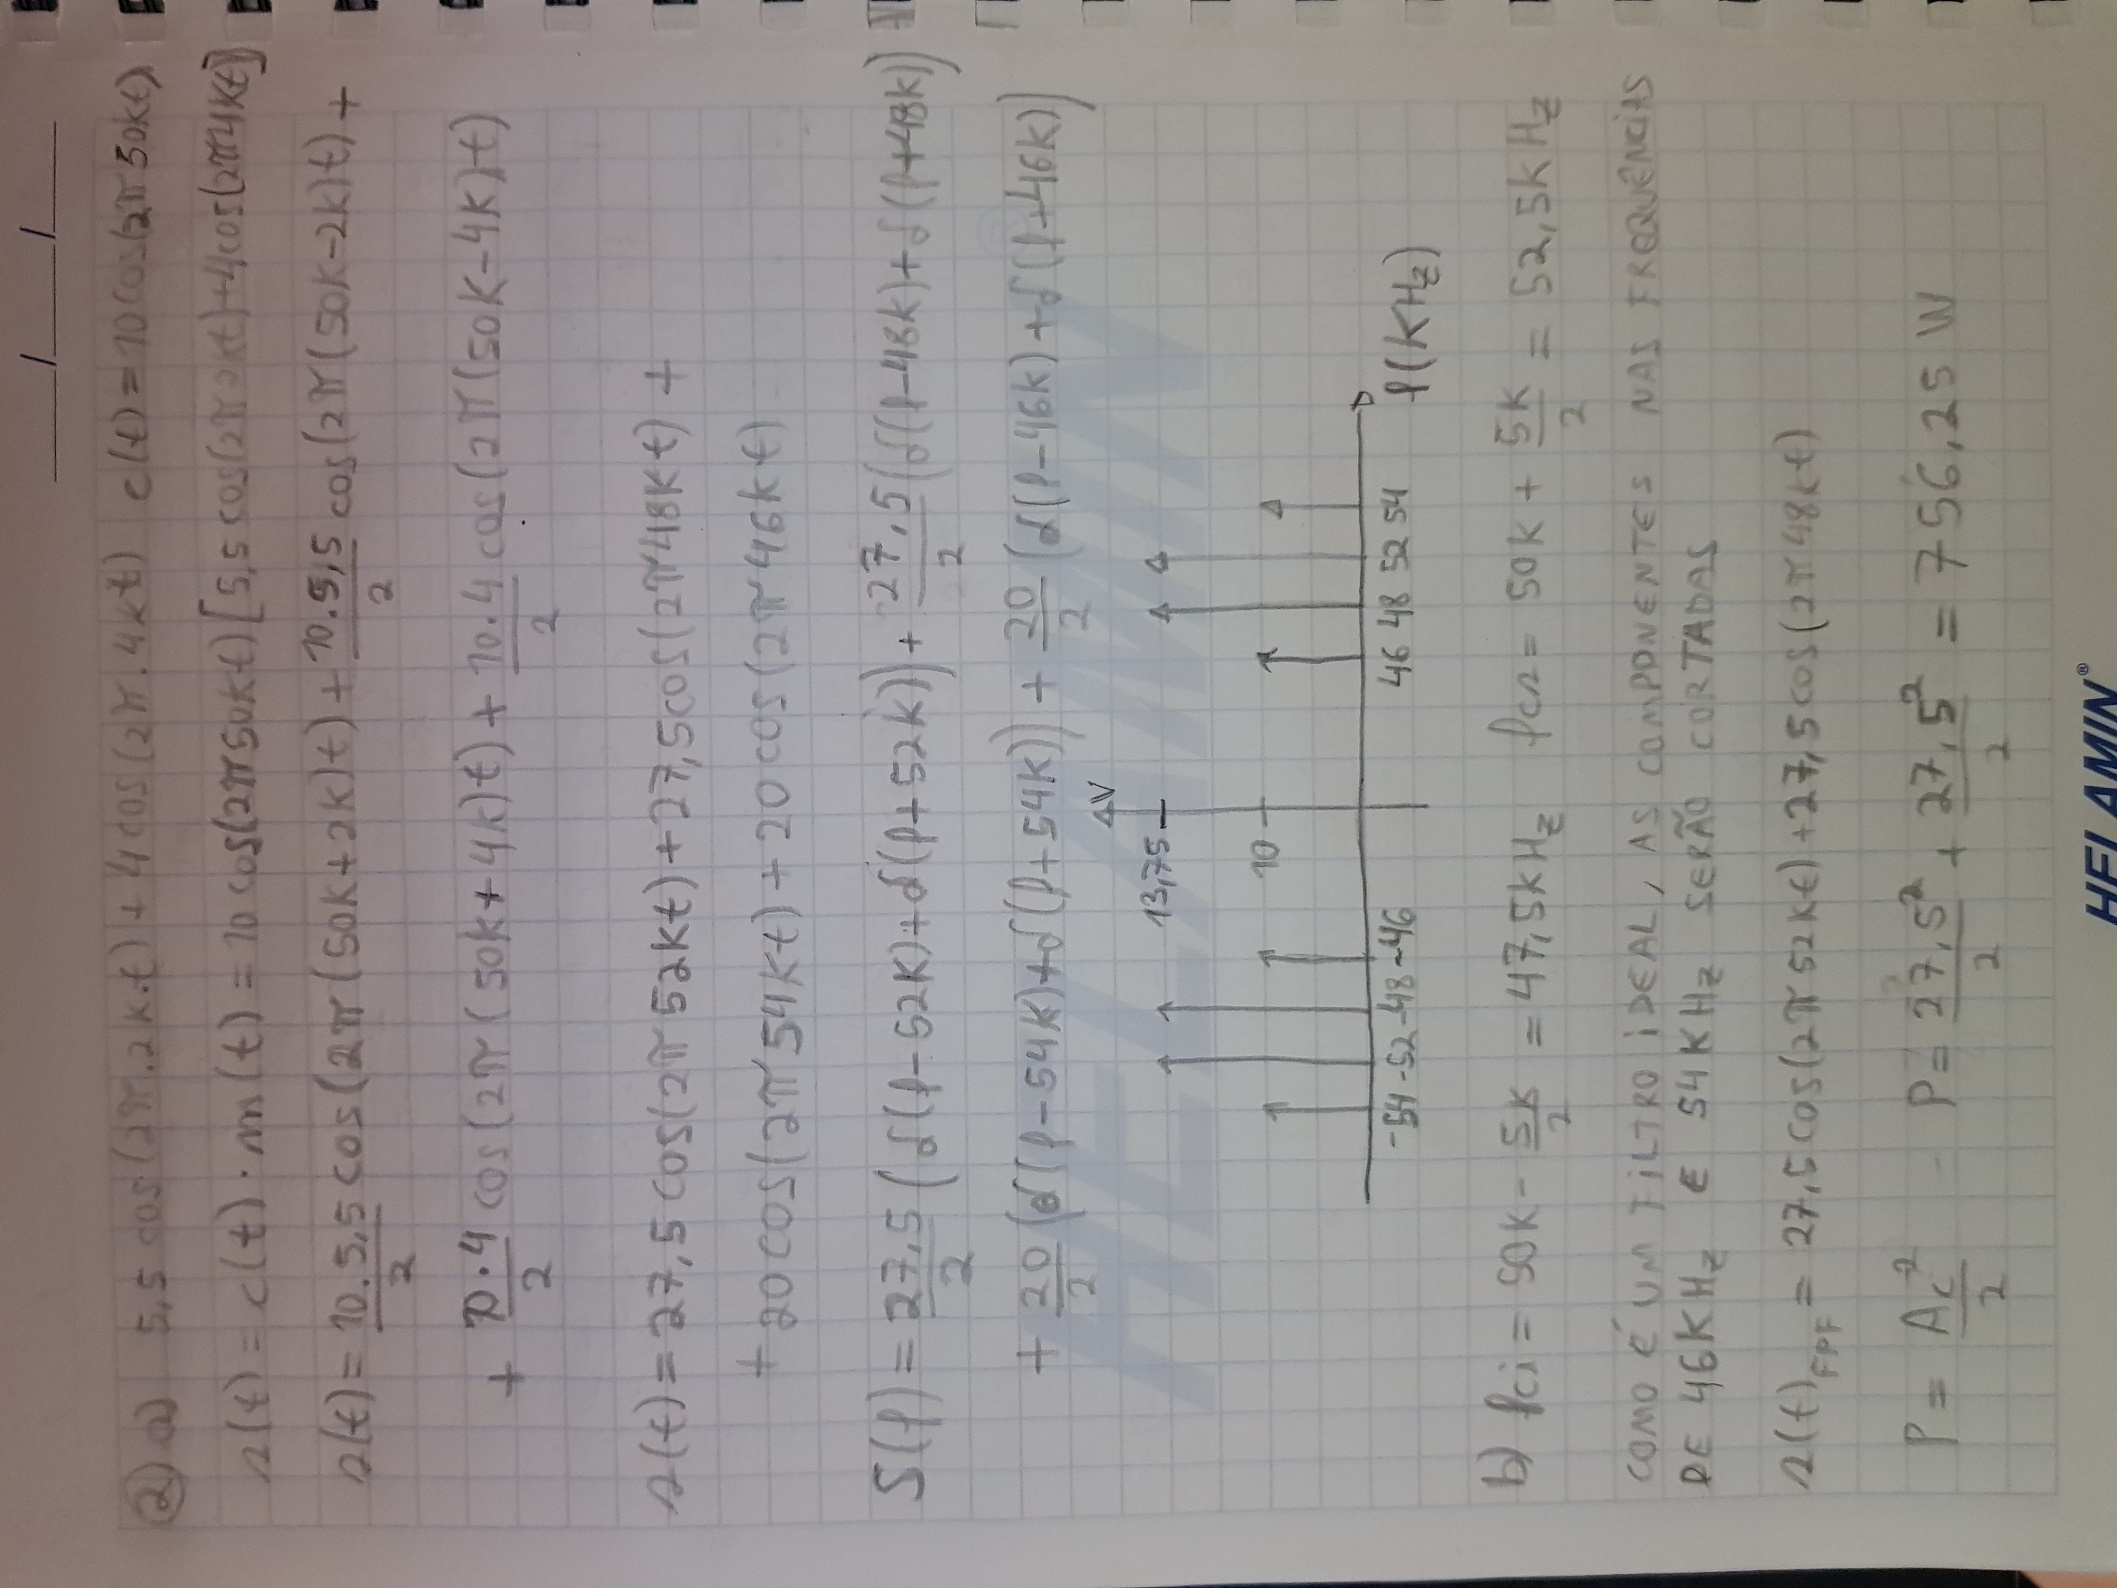 ___/___/___
② a) 5,5 cos(2π.2k.t) + 4 cos(2π.4kt) c(t) = 10 cos(2π50kt)
s(t) = c(t) . m(t) = 10 cos(2π50kt) [5,5 cos(2π2kt)+4cos(2π4kt)]
s(t) = 10.5,5/2 cos(2π(50k+2k)t) + 10.5,5/2 cos(2π(50k-2k)t) +
+ 10.4/2 cos(2π(50k+4k)t) + 10.4/2 cos(2π(50k-4k)t)
s(t) = 27,5 cos(2π52kt) + 27,5cos(2π48kt) +
+ 20cos(2π54kt) + 20cos(2π46kt)
S(f) = 27,5/2 (δ(f-52k)+δ(f+52k)) + 27,5/2 (δ(f-48k)+δ(f+48k))
+ 20/2 (δ(f-54k)+δ(f+54k)) + 20/2 (δ(f-46k)+δ(f+46k))
V
13,75
10
-54 -52 -48 -46 46 48 52 54 f(kHz)
b) fci = 50k - 5k/2 = 47,5kHz fcs = 50k + 5k/2 = 52,5kHz
COMO É UM FILTRO IDEAL, AS COMPONENTES NAS FREQUÊNCIAS
DE 46kHz E 54kHz SERÃO CORTADAS
s(t)FPF = 27,5cos(2π52kt)+27,5cos(2π48kt)
P = Ac²/2 P = 27,5²/2 + 27,5²/2 = 756,25 W
HELAMIN®